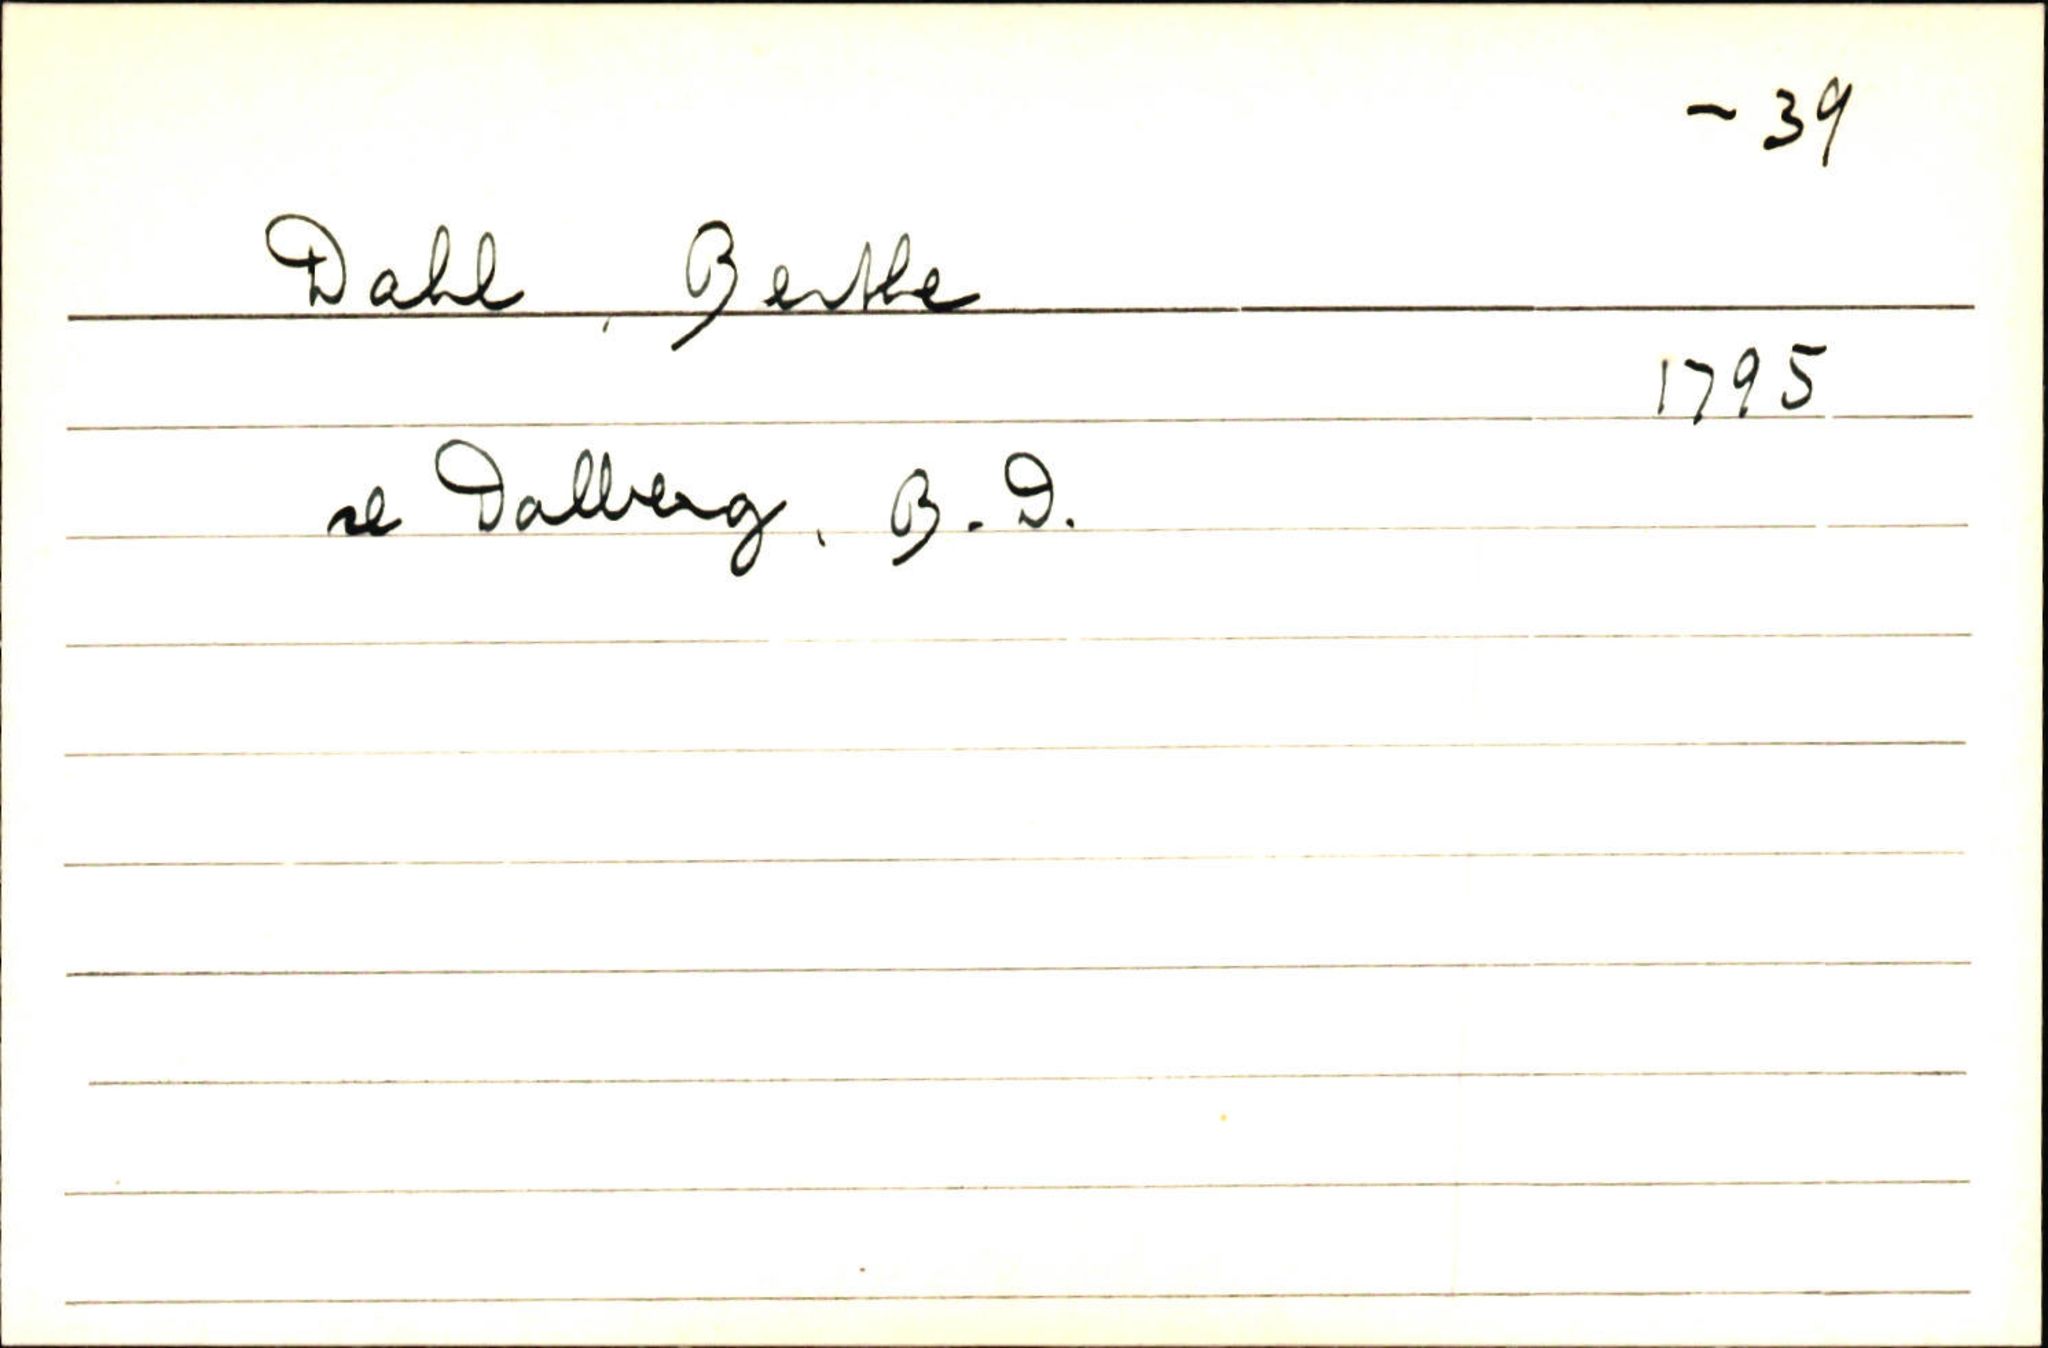 - 39
Dahl, Berthe
1795
se Dalberg, B. D.